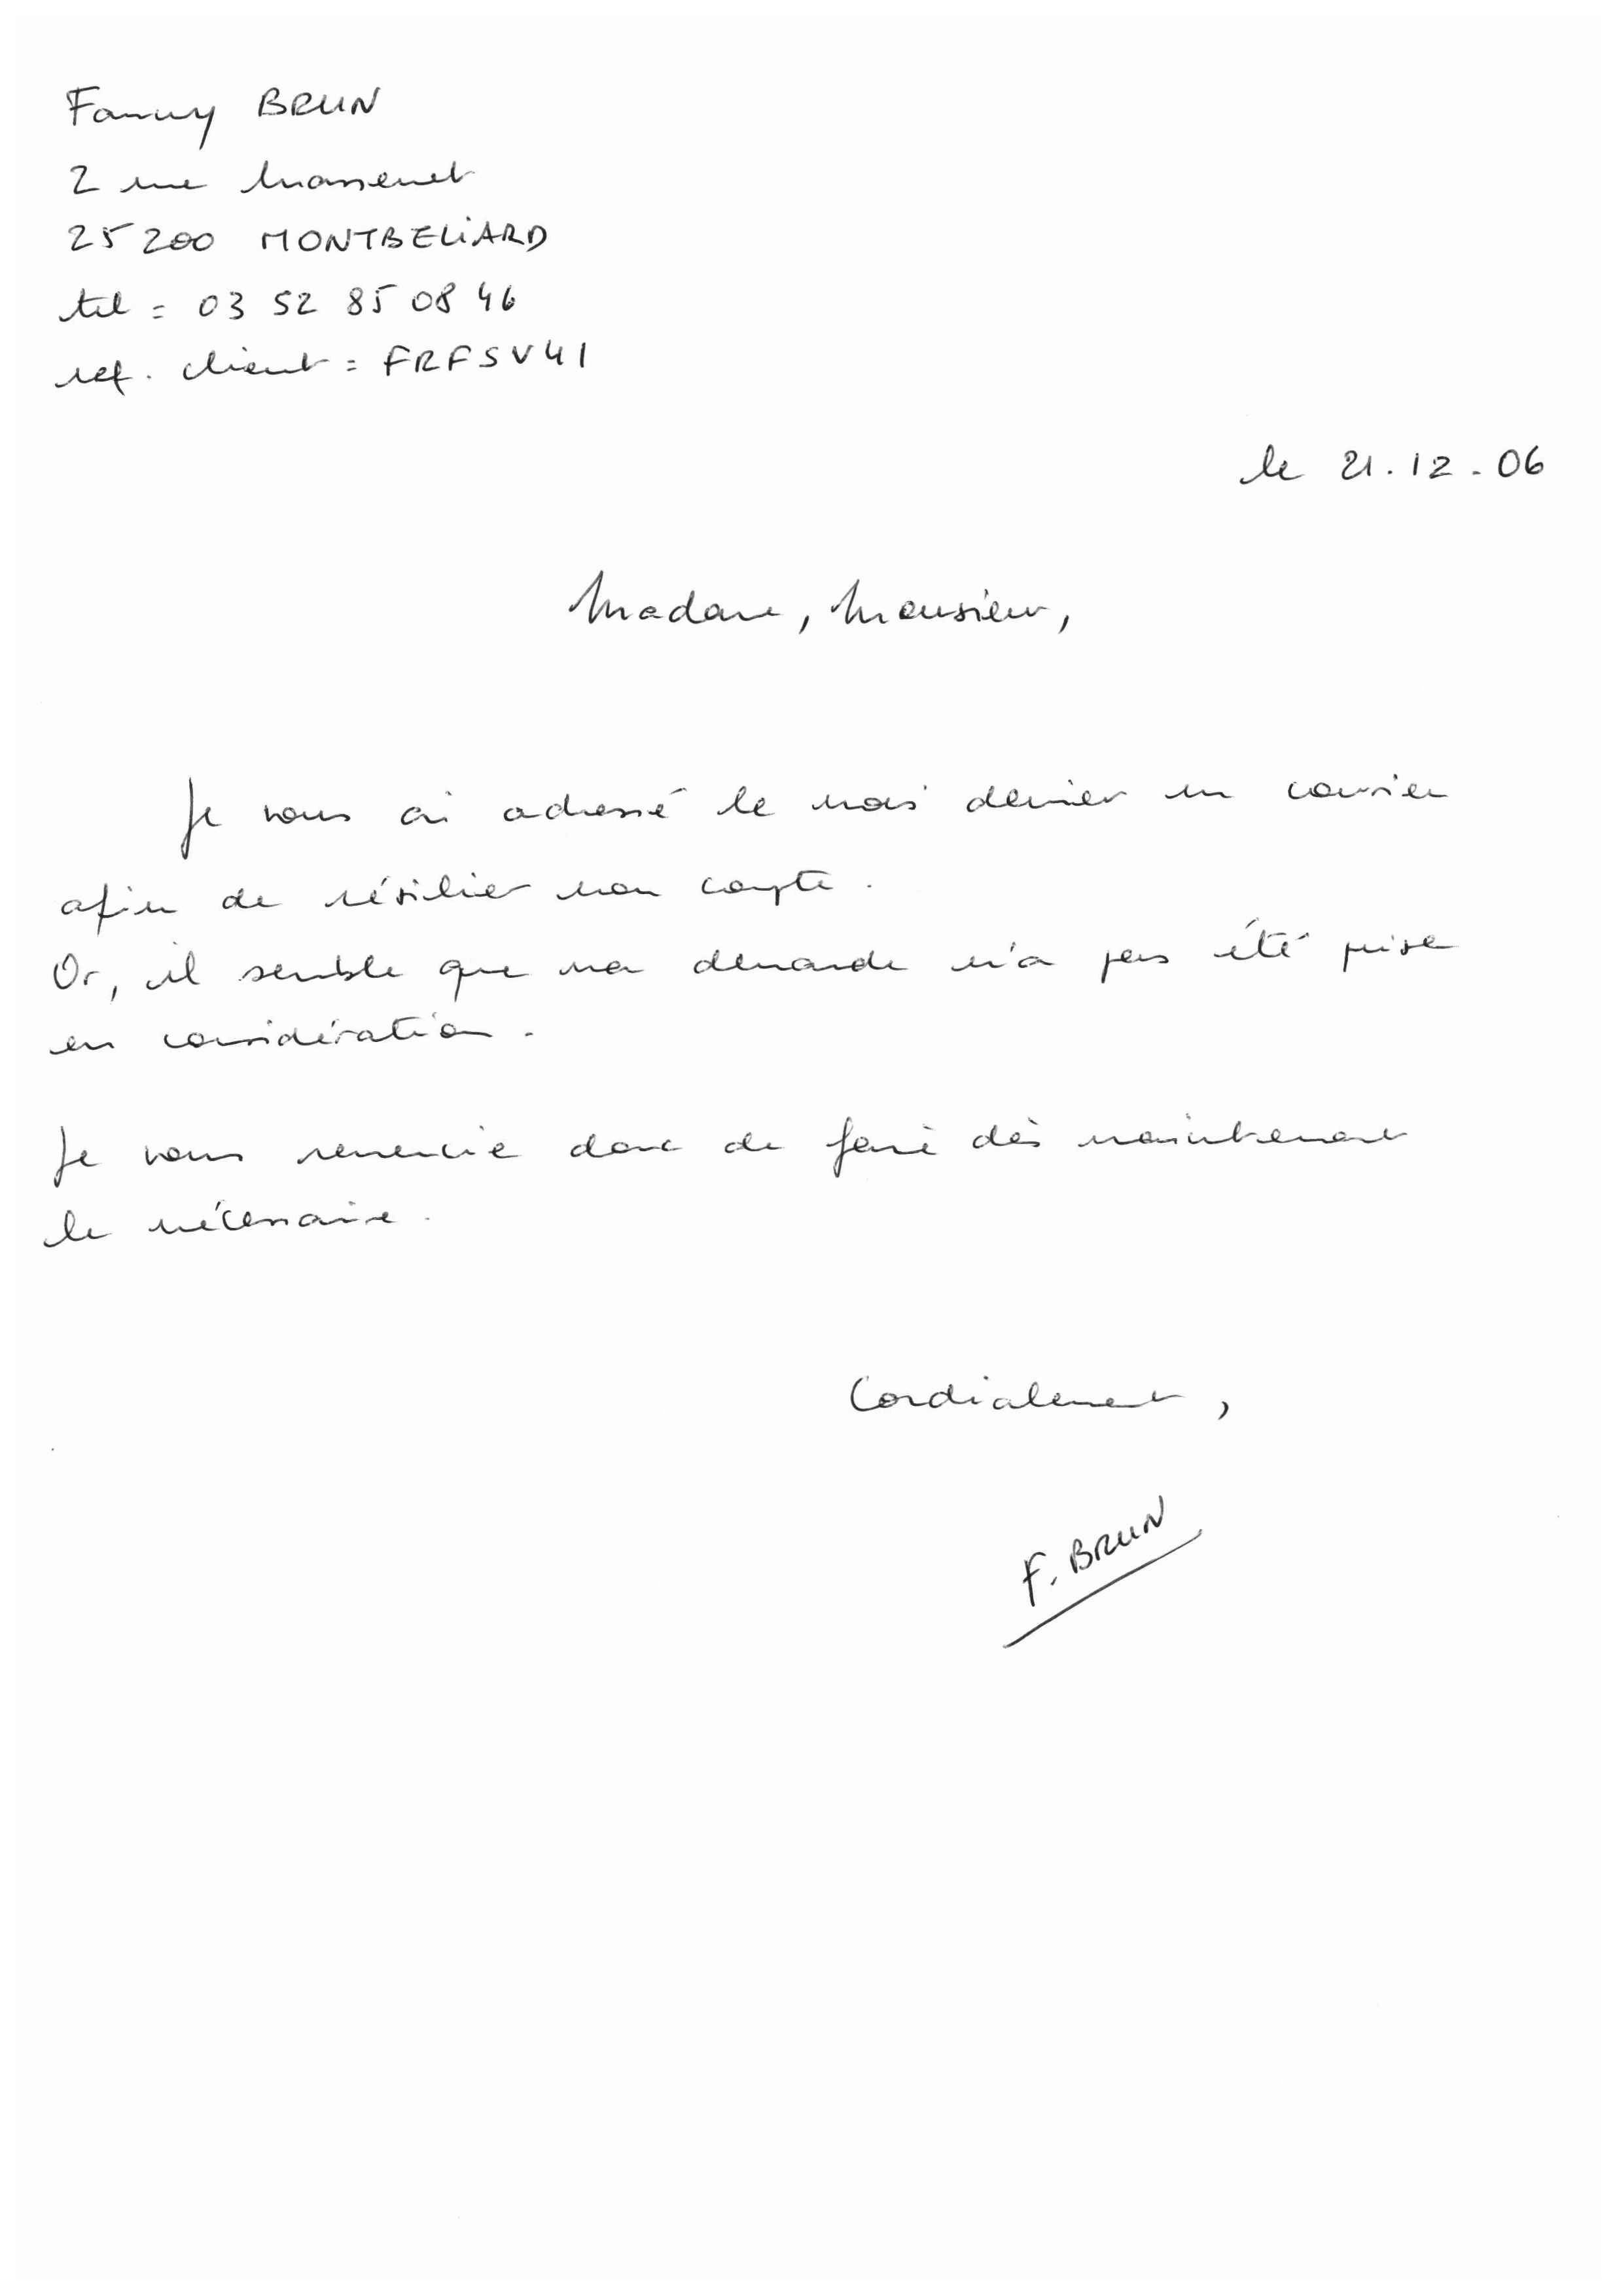 Fanny BRUN
2 rue Massenet
25200 MONTBELIARD
tel = 03 52 85 08 46
ref. client = FRFSV41
le 21.12.06
Madame, Monsieur,
Je vous ai adressé le mois dernier un courrier
afin de résilier mon compte.
Or, il semble que ma demande n'a pas été prise
en considération.
Je vous remercie donc de faire dès maintenant
le nécessaire.
Cordialement,
F. BRUN